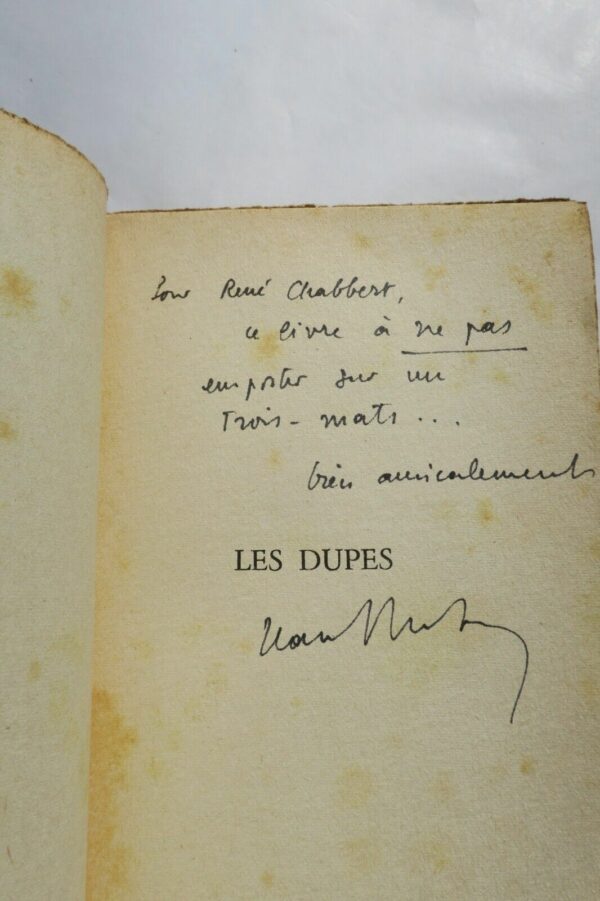 Pour René Chabbert,
ce livre à ne pas
emporter sur un
Trois-mats...
bien amicalement
LES DUPES